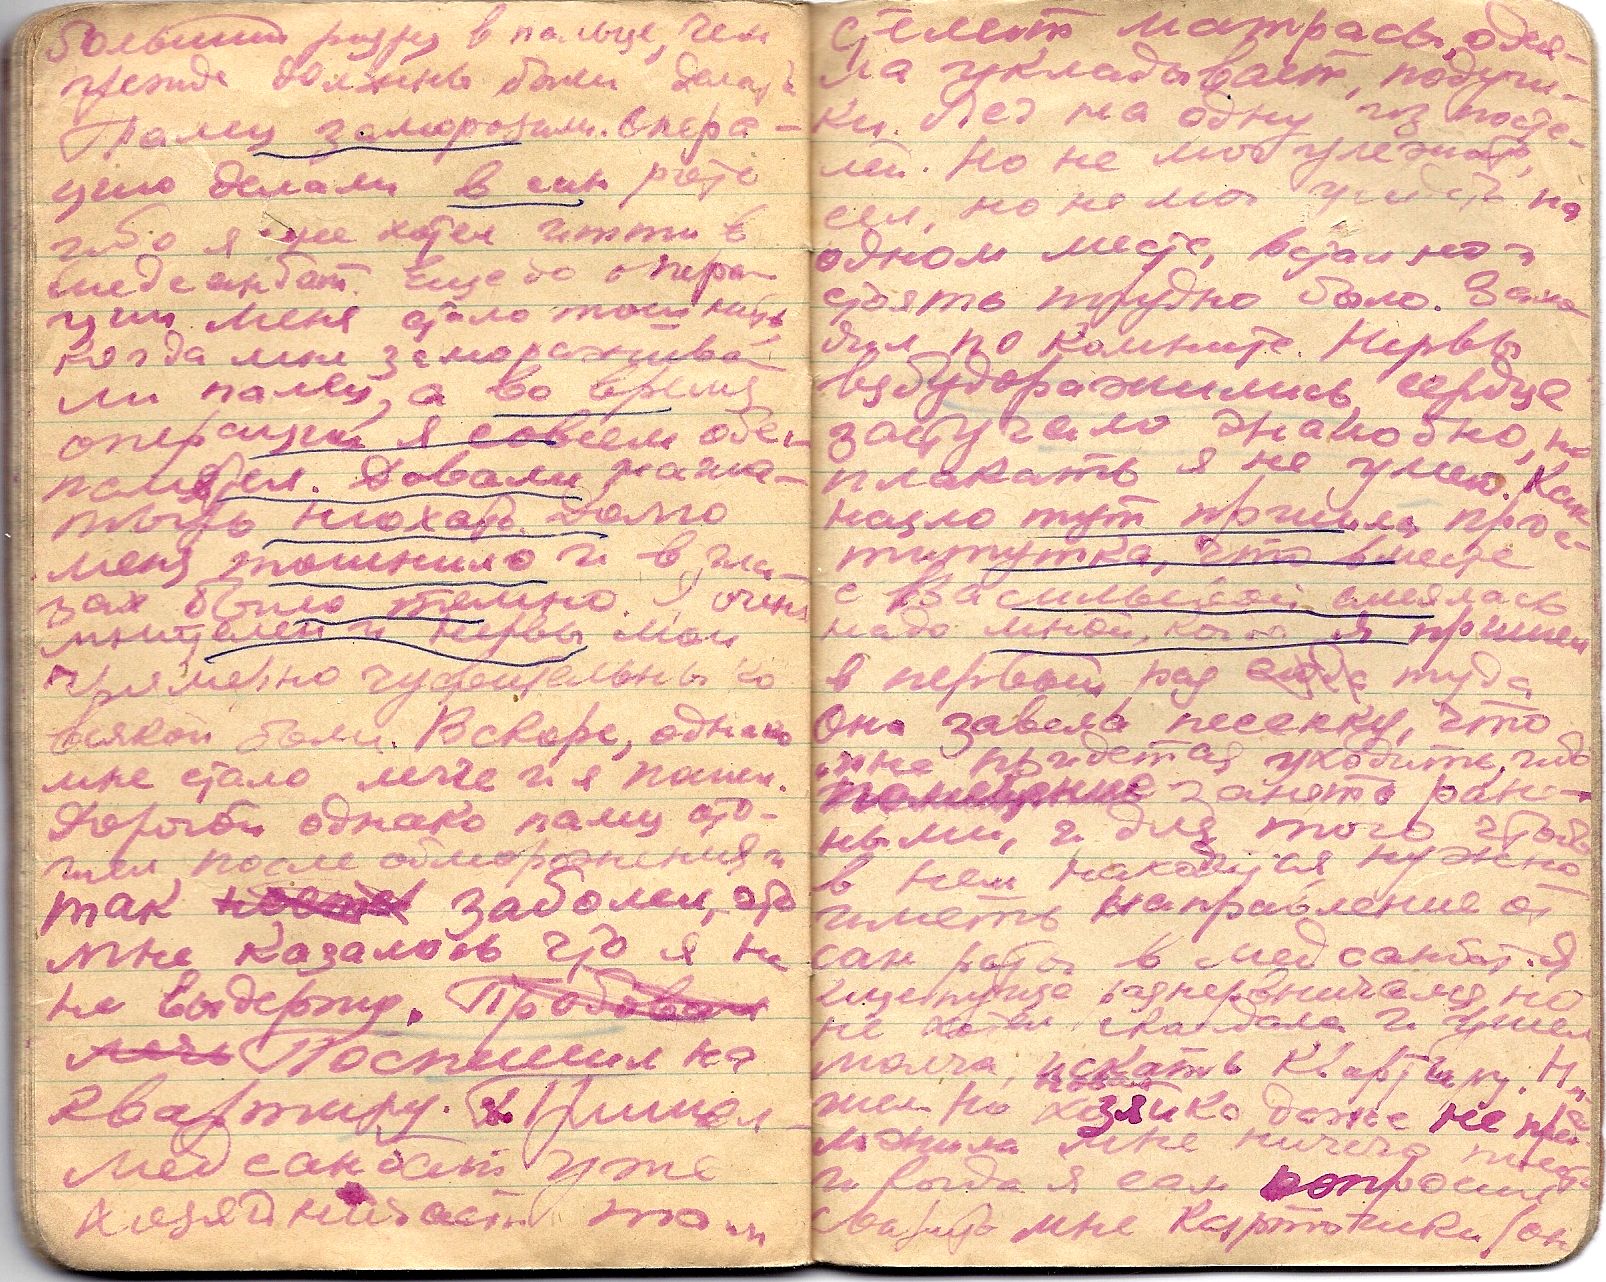 больший разрез в пальце, чем
прежде должны были делать
Палец заморозили. Опера-
цию делали в сан роте
ибо я не хотел итти в
медсанбат. Еще до опера-
ции меня стало тошнить
когда мне заморажива-
ли палец, а во время
операции я совсем обес-
памятел. Довали
нюхать. Долго
меня тошнило и в гла-
зах было темно. Я очень
мнителен и нервы мои
чрямерно чуствительны ко
всякой боли. Вскоре, однако
мне стало легче и я пошел.
Дорогой однако палец ото-
шел после обморожения и
так заболел, что
мне казалось что я не
не выдержу. Пробовал
лечь Поспешил на
квартиру. Пришел
медсанбат уже
хозяйничает там
стелет матрасы, одея-
ла укладывает, подуш-
ки. Лег на одну из посте-
лей. Но не мог улежать,
сел, но не мог усидеть на
одном месте, встал но и
стоять трудно было. Захо
дил по комнате. Нервы
взбудоражились, сердце
застучало знакобно, но
плакать я не умею. Как
назло тут пришла прос-
титутка, что вместе
с Васильевой смеялась
надо мной, когда я пришел
в первый раз сюда туда
Она завела песенку, что
мне придется уходить, ибо
помещение занято ране-
ными, и для того чтобы
в нем находится нужно
иметь направление от
сан роты в медсанбат. Я
еще пуще разнервничался, но
не хотел скандала и ушел
молча, искать квартиру. На-
шел но хозяйка даже не пред
ложила мне ничего поесть
и когда я сам попросил
сварить мне картошки (он